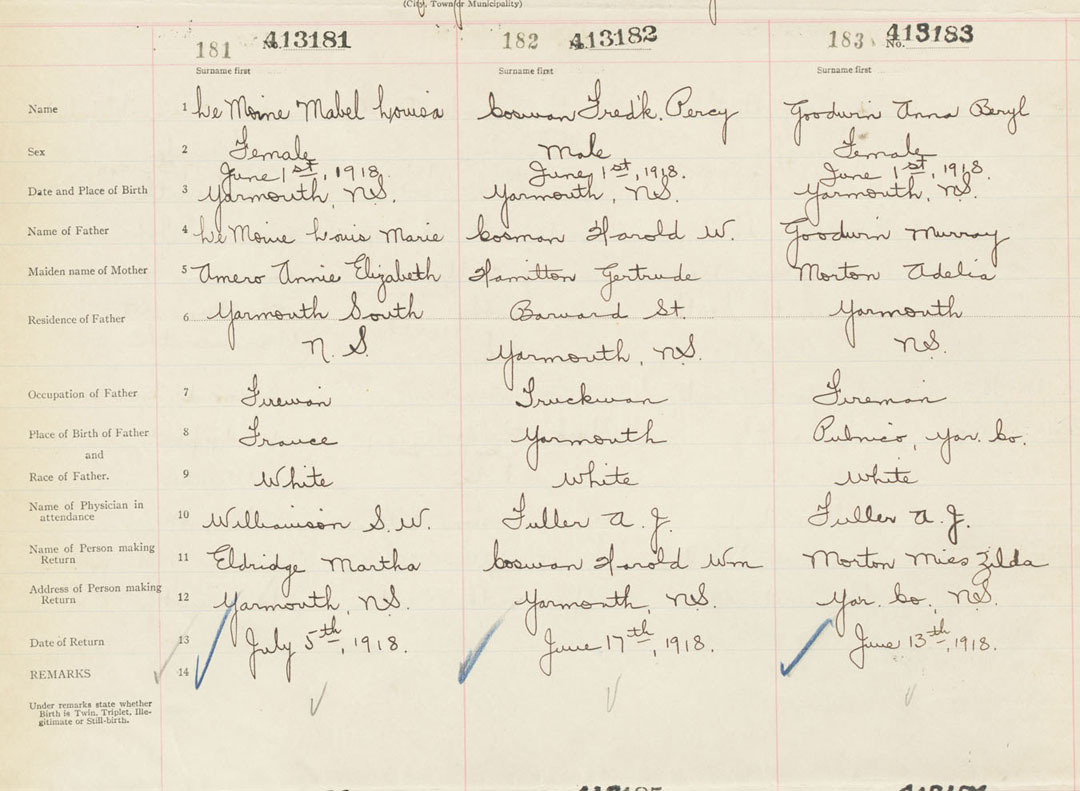 (City, Town or Municipality)
181 No. 413181 182 No. 413182 183 No. 413183
Surname first Surname first Surname first
Name 1 Le Moine Mabel Louisa Cosman Fred'k. Percy Goodwin Anna Beryl
Sex 2 Female Male Female
June 1st, 1918. June 1st, 1918. June 1st, 1918.
Date and Place of Birth 3 Yarmouth, N.S. Yarmouth, N.S. Yarmouth, N.S.
Name of Father 4 Le Moine Louis Marie Cosman Harold W. Goodwin Murray
Maiden name of Mother 5 Amero Annie Elizabeth Hamilton Gertrude Morton Adelia
Residence of Father 6 Yarmouth South St. Yarmouth
N. S. Yarmouth, N.S. N.S.
Occupation of Father 7 Fireman Truckman Fireman
Place of Birth of Father 8 France Yarmouth Pubnico, Yar. Co.
and
Race of Father. 9 White White White
Name of Physician in
attendance 10 Williamson S. W. Fuller A. J. Fuller A. J.
Name of Person making
Return 11 Eldridge Martha Cosman Harold Wm Morton Miss Zilda
Address of Person making
Return 12 Yarmouth, N.S. Yarmouth, N.S. Yar. Co., N.S.
Date of Return 13 July 5th, 1918. June 17th, 1918. June 13th, 1918.
REMARKS 14
Under remarks state whether
Birth is Twin, Triplet, Ille-
gitimate or Still-birth.